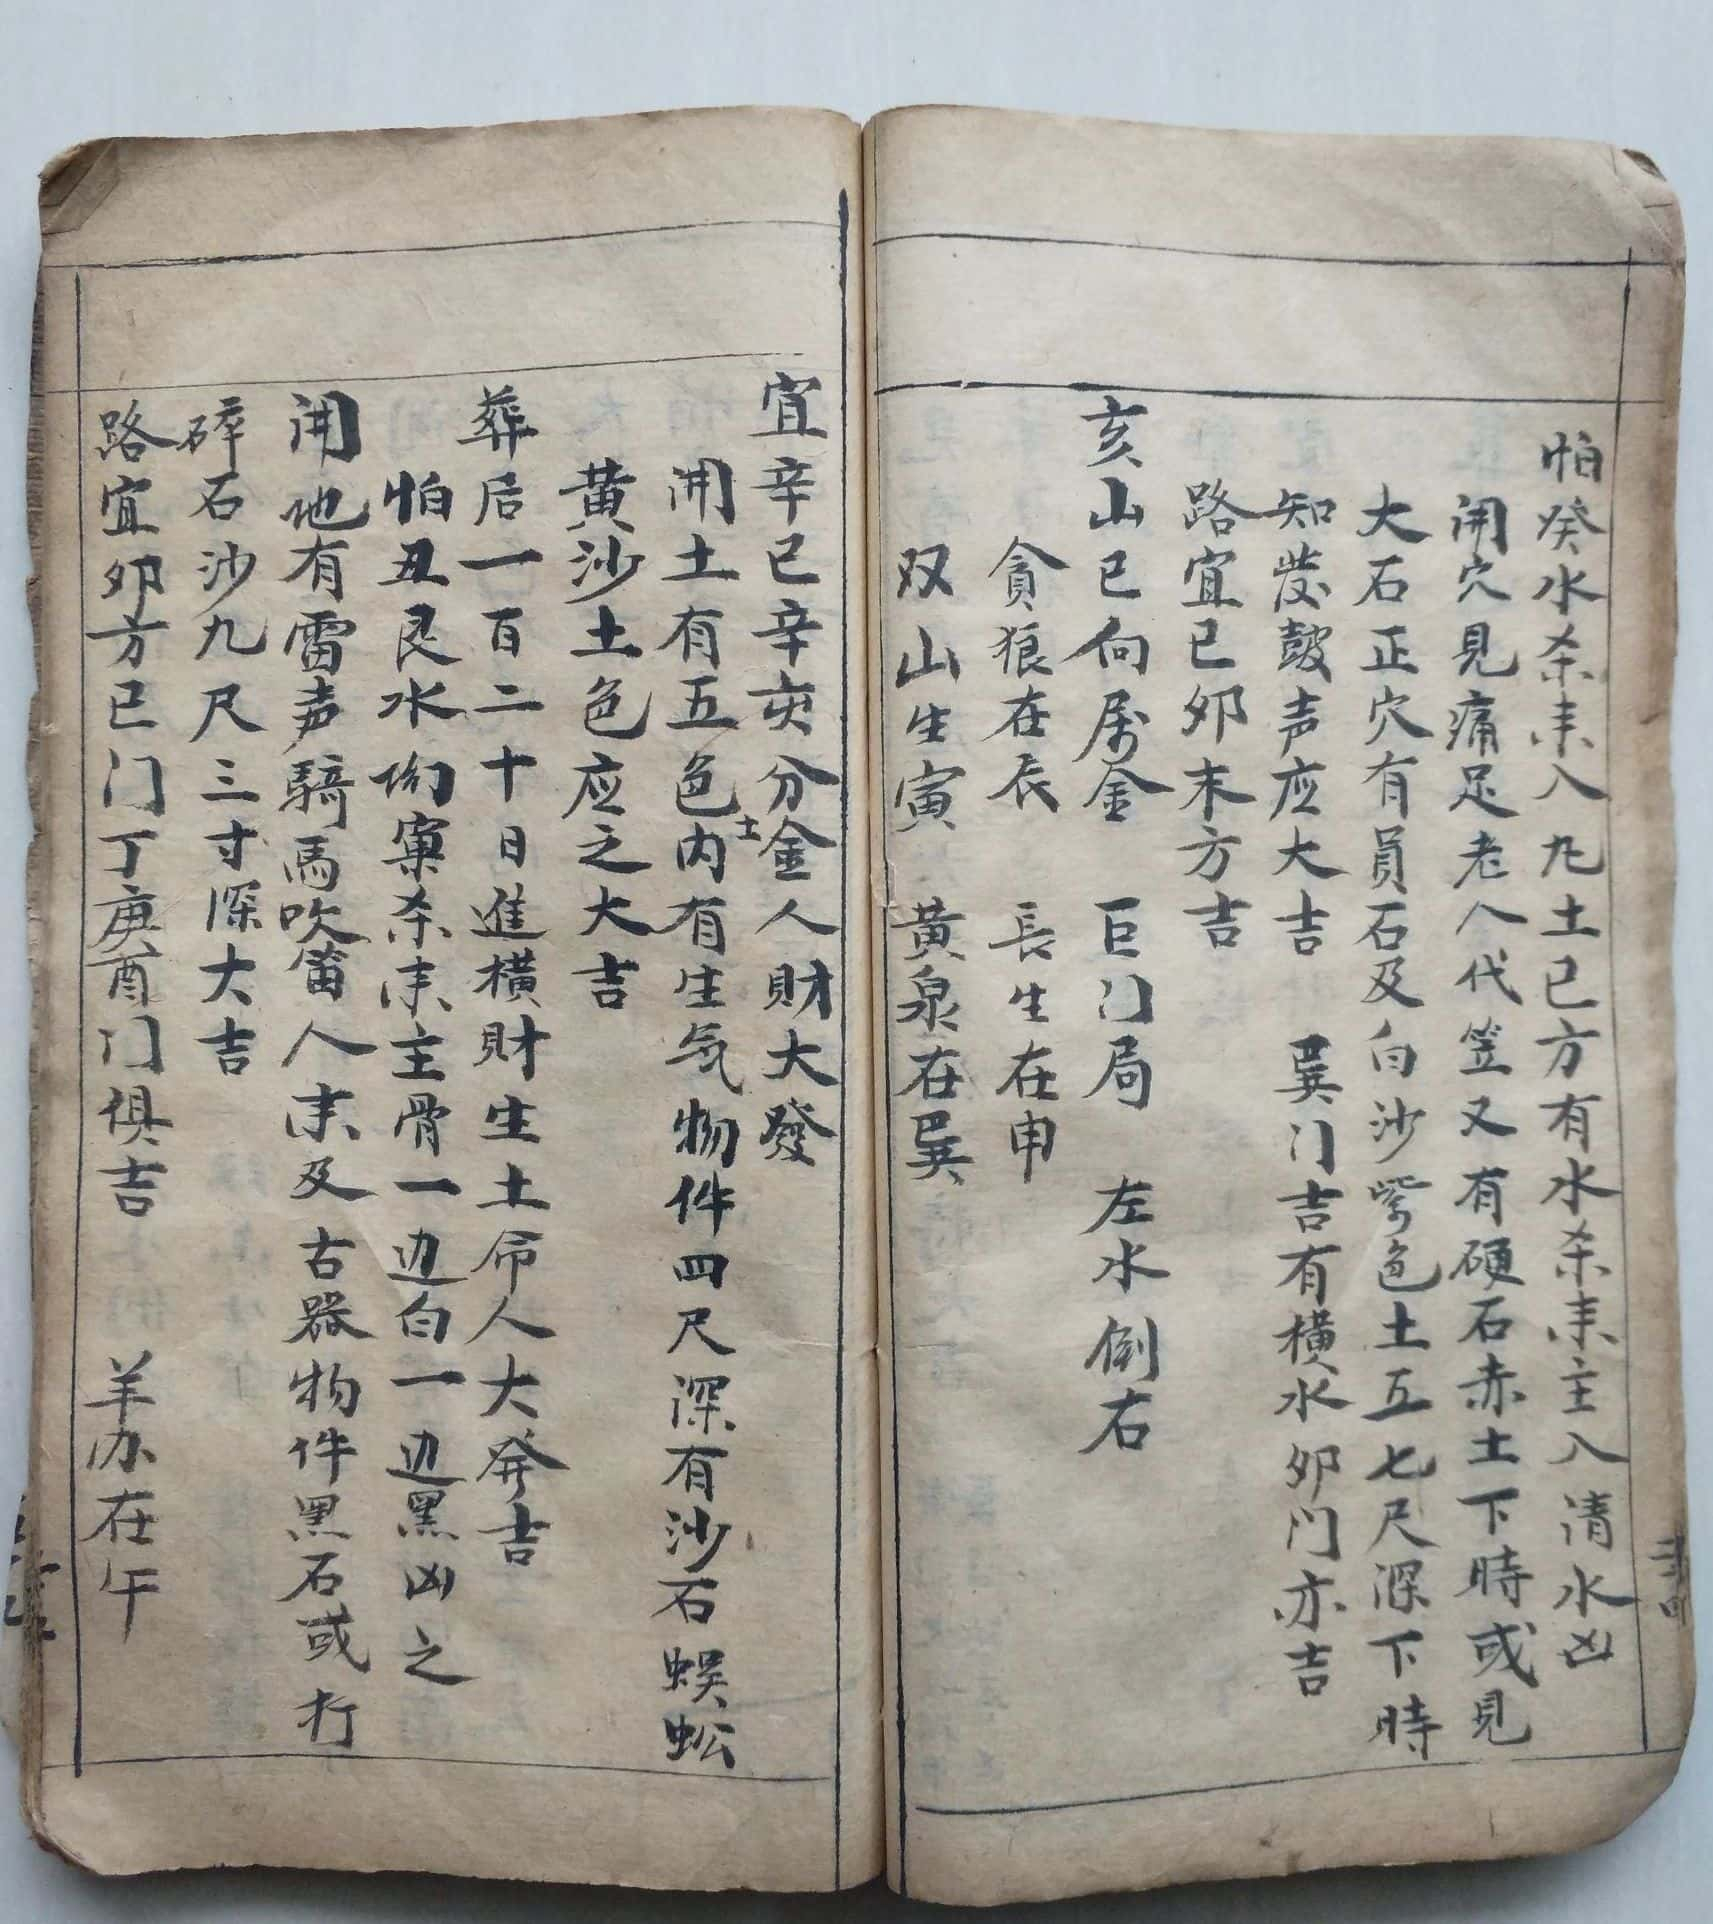 怕癸水杀耒入九土巳方有水杀耒主入清水凶
開穴見痛足老人代笠又有硬石赤土下時或見
大石正穴有員石及白沙紫色土五七尺深下時
知發鼓声应大吉 巽门吉有横水卯门亦吉
路宜巳卯末方吉
亥山巳向属金 巨门局 左水倒右
貪狼在辰 長生在申
双山生寅 黄泉在巽
宜辛巳辛亥分金人財大發
開土有五色土内有生気物件四尺深有沙石蜈蚣
黄沙土色应之大吉
葬后一百二十日進横財生土命人大発吉
怕丑艮水彻窠杀耒主骨一边白一边黑凶之
開地有雷声騎馬吹笛人耒及古器物件黑石或打
碎石沙九尺三寸深大吉
路宜卯方巳门丁庚酉门俱吉 羊办在午